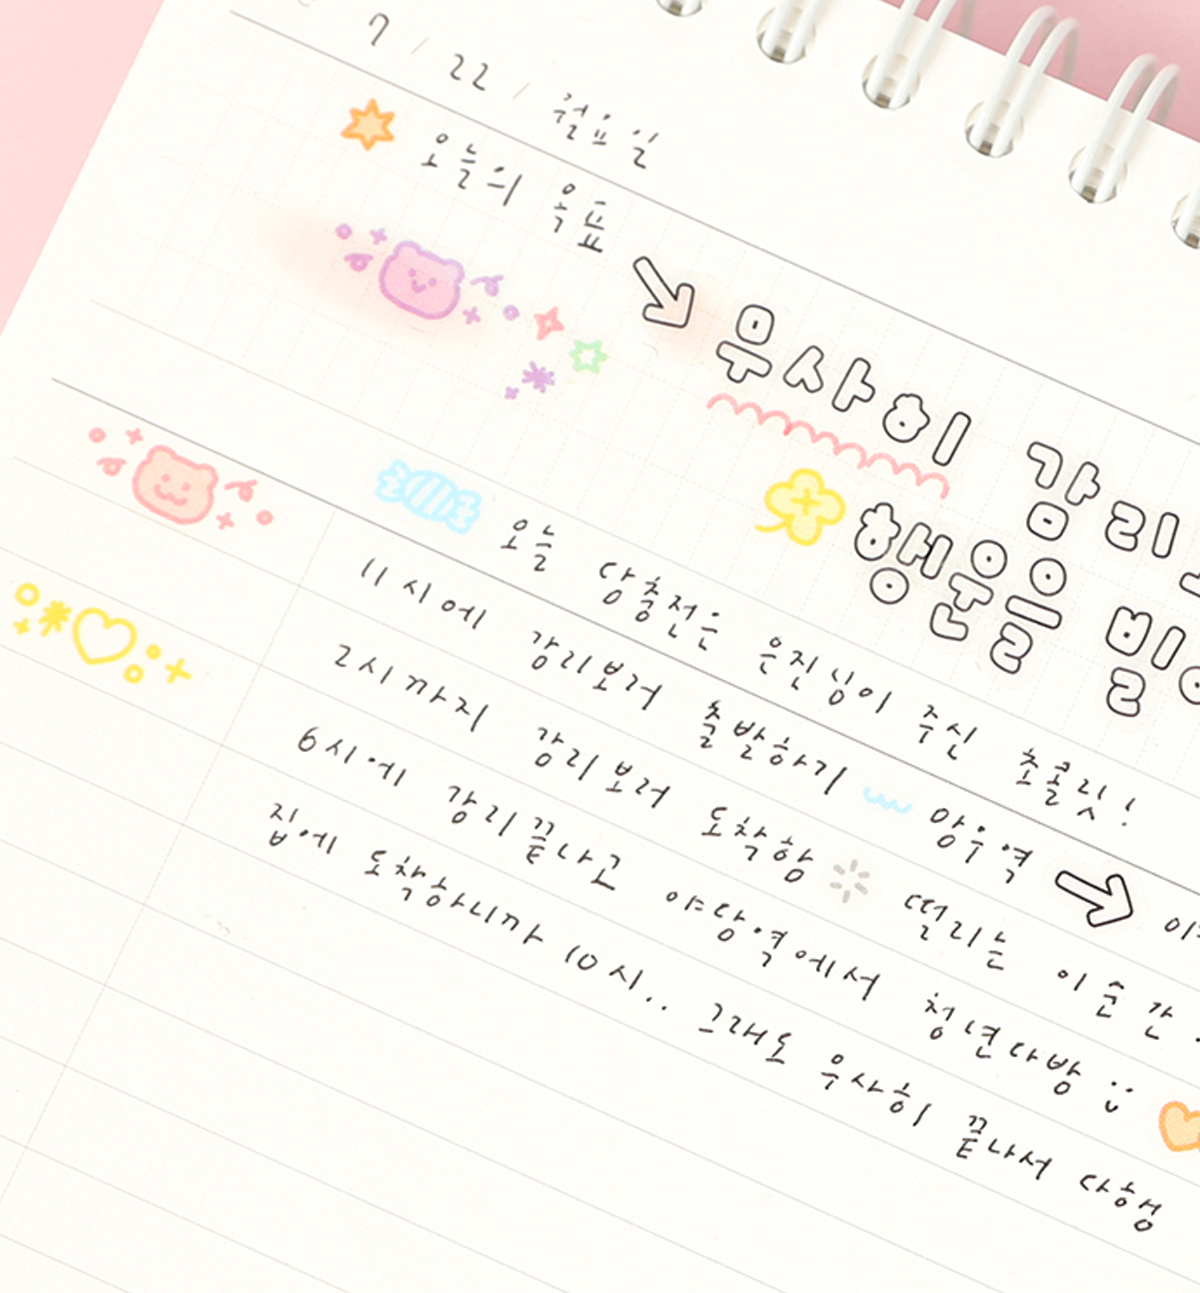 7 / 22 / 월요일
오늘의 목표
무사히 감리
행운을 빌
오늘 당충전은 은진님이 주신 초콜릿!
11시에 감리보러 출발하기 망우역 →
2시까지 감리보러 도착함 떨리는 이 순간
6시에 감리끝나고 야당역에서 청년다방
집에 도착하니까 10시.. 그래도 무사히 끝나서 다행